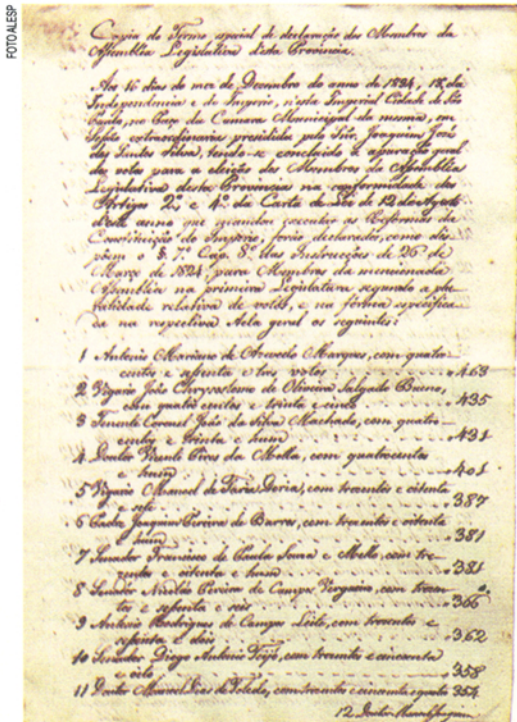 FOTO ALESP
Copia do Termo especial de declaração dos Membros da
Assemblea Legislativa desta Provincia.
Aos 16 dias do mez de Dezembro do anno de 1834, 13º da
Independencia e do Imperio, n'esta Imperial Cidade de São
Paulo, no Paço da Camara Municipal da mesma, em
Sessão extraordinaria presidida pelo Snr. Joaquim José
dos Santos Silva, tendo-se concluido a apuração geral
de votos para a eleição dos Membros da Assemblea
Legislativa desta Provincia na conformidade dos
Artigos 2º e 4º da Carta de Lei de 12 de Agosto
deste anno que mandou executar as Reformas da
Constituição do Imperio, forão declarados, como dis-
põem o § 7º Cap. 8º das Instrucções de 26 de
Março de 1824, para Membros da mencionada
Assemblea na primeira Legislatura segundo a plu-
ralidade relativa de votos, e na forma especifica-
da na respectiva Acta geral os seguintes:
1 Antonio Mariano de Azevedo Marques, com quatro-
centos e sessenta e tres votos 463
2 Vigario João Chrysostomo de Oliveira Salgado Bueno,
com quatro centos e trinta e cinco 435
3 Tenente Coronel João da Silva Machado, com quatro
centos e trinta e hum 431
4 Doutor Vicente Pires da Motta, com quatrocentos
e hum 401
5 Vigario Manoel de Faria Doria, com trezentos e oitenta
e sete 387
6 Padre Joaquim Pereira de Barros, com trezentos e oitenta
e hum 381
7 Senador Francisco de Paula Souza e Mello, com tre-
zentos e oitenta e hum 381
8 Senador Nicoláo Pereira de Campos Vergueiro, com trezen-
tos e sessenta e seis 366
9 Antonio Rodrigues de Campos Leite, com trezentos e
sessenta e dois 362
10 Senador Diogo Antonio Feijó, com trezentos e cincoenta
e oito 358
11 Doutor Manoel Dias de Toledo, com trezentos e cincoenta e quatro 354
12 Doutor Manoel Joaquim